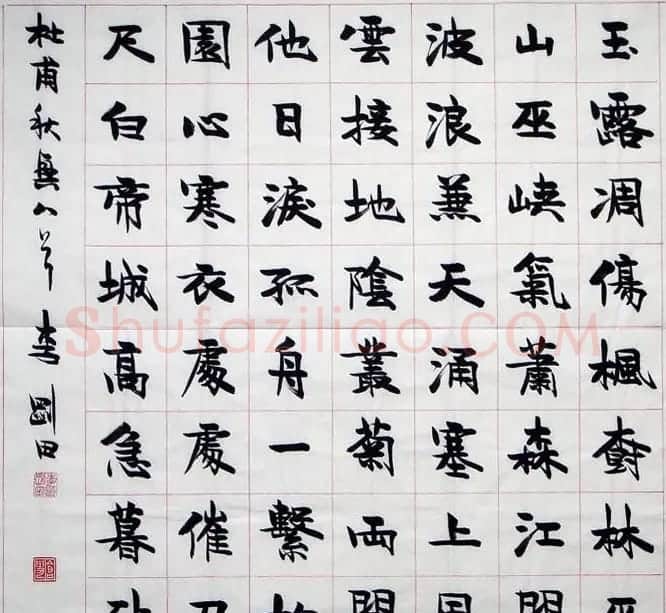 玉露凋傷楓樹林
山巫峽氣蕭森江
波浪兼天涌塞上
雲接地陰叢菊兩
他日淚孤舟一繫
園心寒衣處處催
尺白帝城高急暮
杜甫秋興八首 李剛田
Shufaziliao.COM